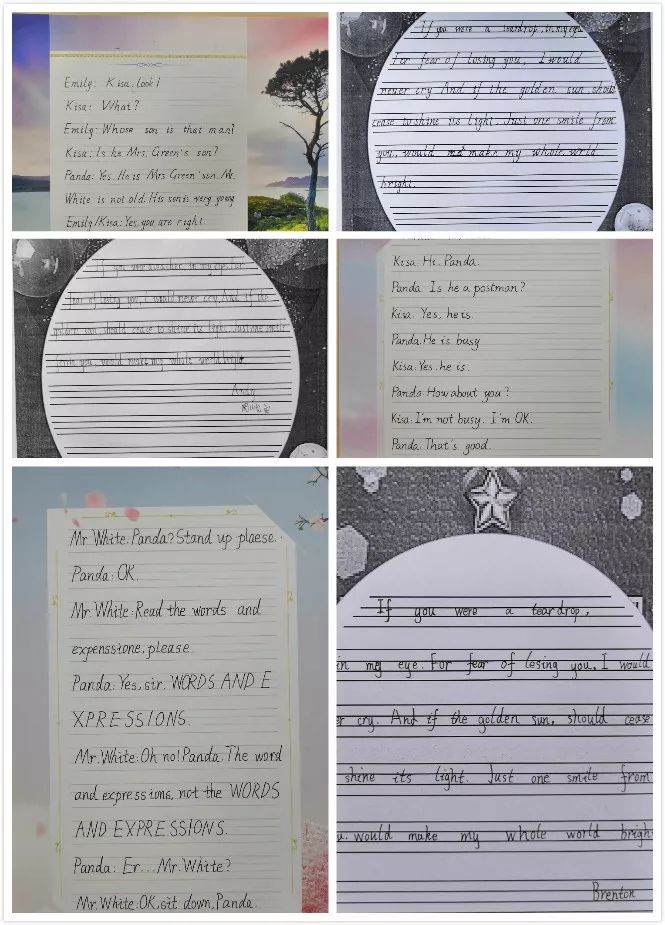 Emily: Kisa, look!
Kisa: What?
Emily: Whose son is that man?
Kisa: Is he Mrs. Green's son?
Panda: Yes. He is Mrs Green' son. Mr.
White is not old. His son is very young
Emily/Kisa: Yes, you are right.
If you were a teardrop, in my eye
For fear of losing you, I would
never cry And if the golden sun should
cease to shine its light. Just one smile from
you, would make my whole world
bright
If you were a teardrop, in my eye. For
fear of losing you, I would never cry. And if the
golden sun, should cease to shine its light. Just one smile
from you, would make my whole world bright
Andy
Kisa: Hi, Panda.
Panda: Is he a postman?
Kisa: Yes, he is.
Panda: He is busy
Kisa: Yes, he is.
Panda: How about you?
Kisa: I'm not busy. I'm OK.
Panda: That's good.
Mr. White: Panda? Stand up plaese.
Panda: OK.
Mr. White: Read the words and
expenssione, please.
Panda: Yes, sir. WORDS AND E
XPRESSIONS.
Mr. White: Oh no! Panda. The word
and expressions, not the WORDS
AND EXPRESSIONS.
Panda: Er... Mr. White?
Mr. White: OK, sit down, Panda.
If you were a teardrop,
in my eye. For fear of lesing you, I would
er cry. And if the golden sun, should cease
shine its light. Just one smile from
u. would make my whole world brigh
Brenton